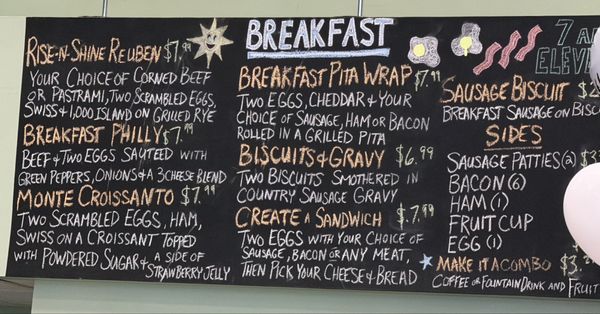 BREAKFAST
RISE-N-SHINE REUBEN $7.99
YOUR CHOICE OF CORNED BEEF
OR PASTRAMI, TWO SCRAMBLED EGGS,
SWISS & 1,000 ISLAND ON GRILLED RYE
BREAKFAST PHILLY $7.99
BEEF & TWO EGGS SAUTEED WITH
GREEN PEPPERS, ONIONS & A 3 CHEESE BLEND
MONTE CROISSANTO $7.99
TWO SCRAMBLED EGGS, HAM,
SWISS ON A CROISSANT TOPPED
WITH POWDERED SUGAR & A SIDE OF
STRAWBERRY JELLY
BREAKFAST PITA WRAP $7.99
TWO EGGS, CHEDDAR & YOUR
CHOICE OF SAUSAGE, HAM OR BACON
ROLLED IN A GRILLED PITA
BISCUITS & GRAVY $6.99
TWO BISCUITS SMOTHERED IN
COUNTRY SAUSAGE GRAVY
CREATE A SANDWICH $7.99
TWO EGGS WITH YOUR CHOICE OF
SAUSAGE, BACON OR ANY MEAT,
THEN PICK YOUR CHEESE & BREAD
7 A
ELEVE
SAUSAGE BISCUIT $2
BREAKFAST SAUSAGE ON BISC
SIDES
SAUSAGE PATTIES (2) $3
BACON (6)
HAM (1)
FRUIT CUP
EGG (1)
MAKE IT A COMBO $3.
COFFEE OR FOUNTAIN DRINK AND FRUIT